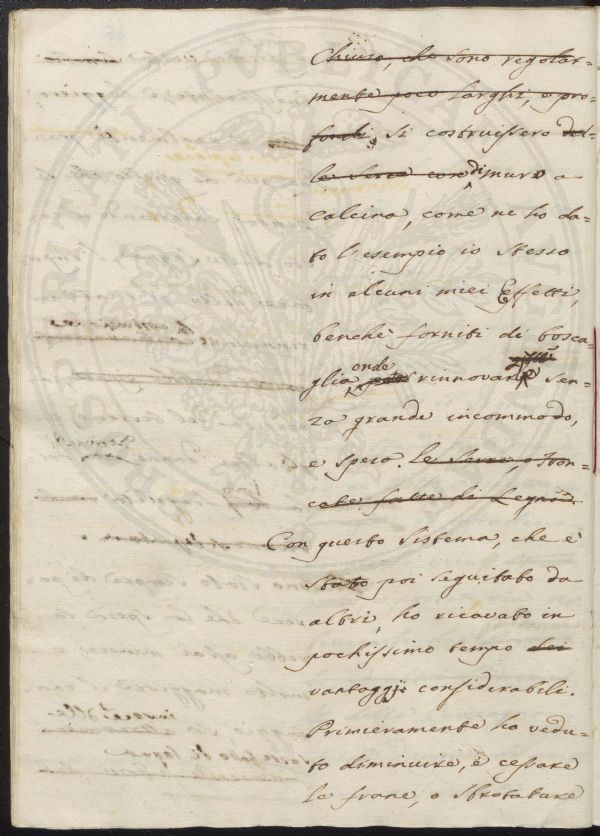 Chiuse, che sono regolar=
mente poco larghi, e pro=
fondi, si costruissero del=
le serre con di muro a
calcina, come ne ho da=
to l'esempio io stesso
in alcuni miei Effetti,
benchè forniti di bosca=
glia onde rinnovarle sen=
za grande incommodo,
e spesa. le Serre, o ston=
cate fatte di Legno.
Con questo sistema, che è
stato poi seguitato da
altri, ho ricavato in
pochissimo tempo dei
vantaggi considerabili.
Primieramente ho vedu=
to diminuire, e cessare
le frane, o sbrotature